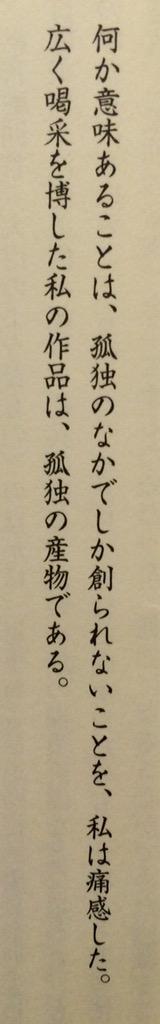 何か意味あることは、孤独のなかでしか創られないことを、私は痛感した。
広く喝采を博した私の作品は、孤独の産物である。